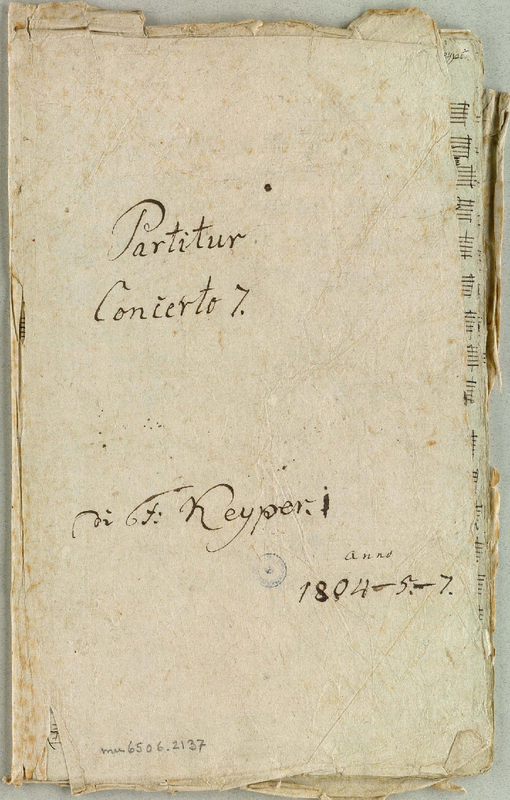 Partitur
Concerto 7.
di F: Keyper. i
Anno
1804-5.-7.
mu6506.2137